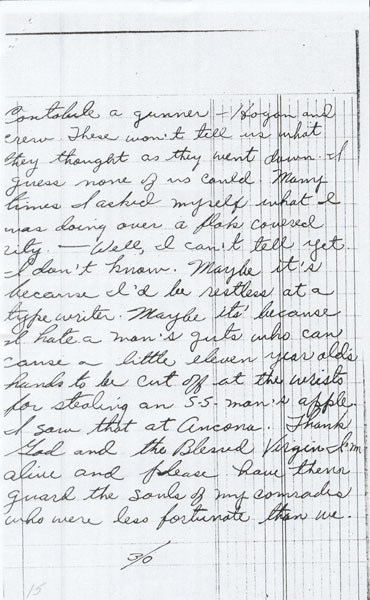 Contabile a gunner - Hogan and
crew. These won't tell us what
they thought as they went down. I
guess none of us could. Many
times I asked myself what I
was doing over a flak covered
city. — Well, I can't tell yet.
I don't know. Maybe it's
because I'd be restless at a
typewriter. Maybe its' because
I hate a man's guts who can
cause a little eleven year olds
hands to be cut off at the wrists
for stealing an S-S-man's apple.
I saw that at Ancona. Thank
God and the Blessed Virgin I'm
alive and please have them
guard the souls of my comrades
who were less fortunate than we.
30
15